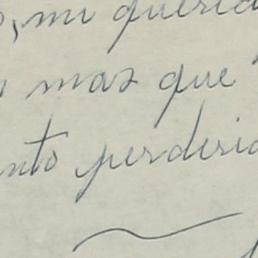 , mi querid
mas que
nto perderia